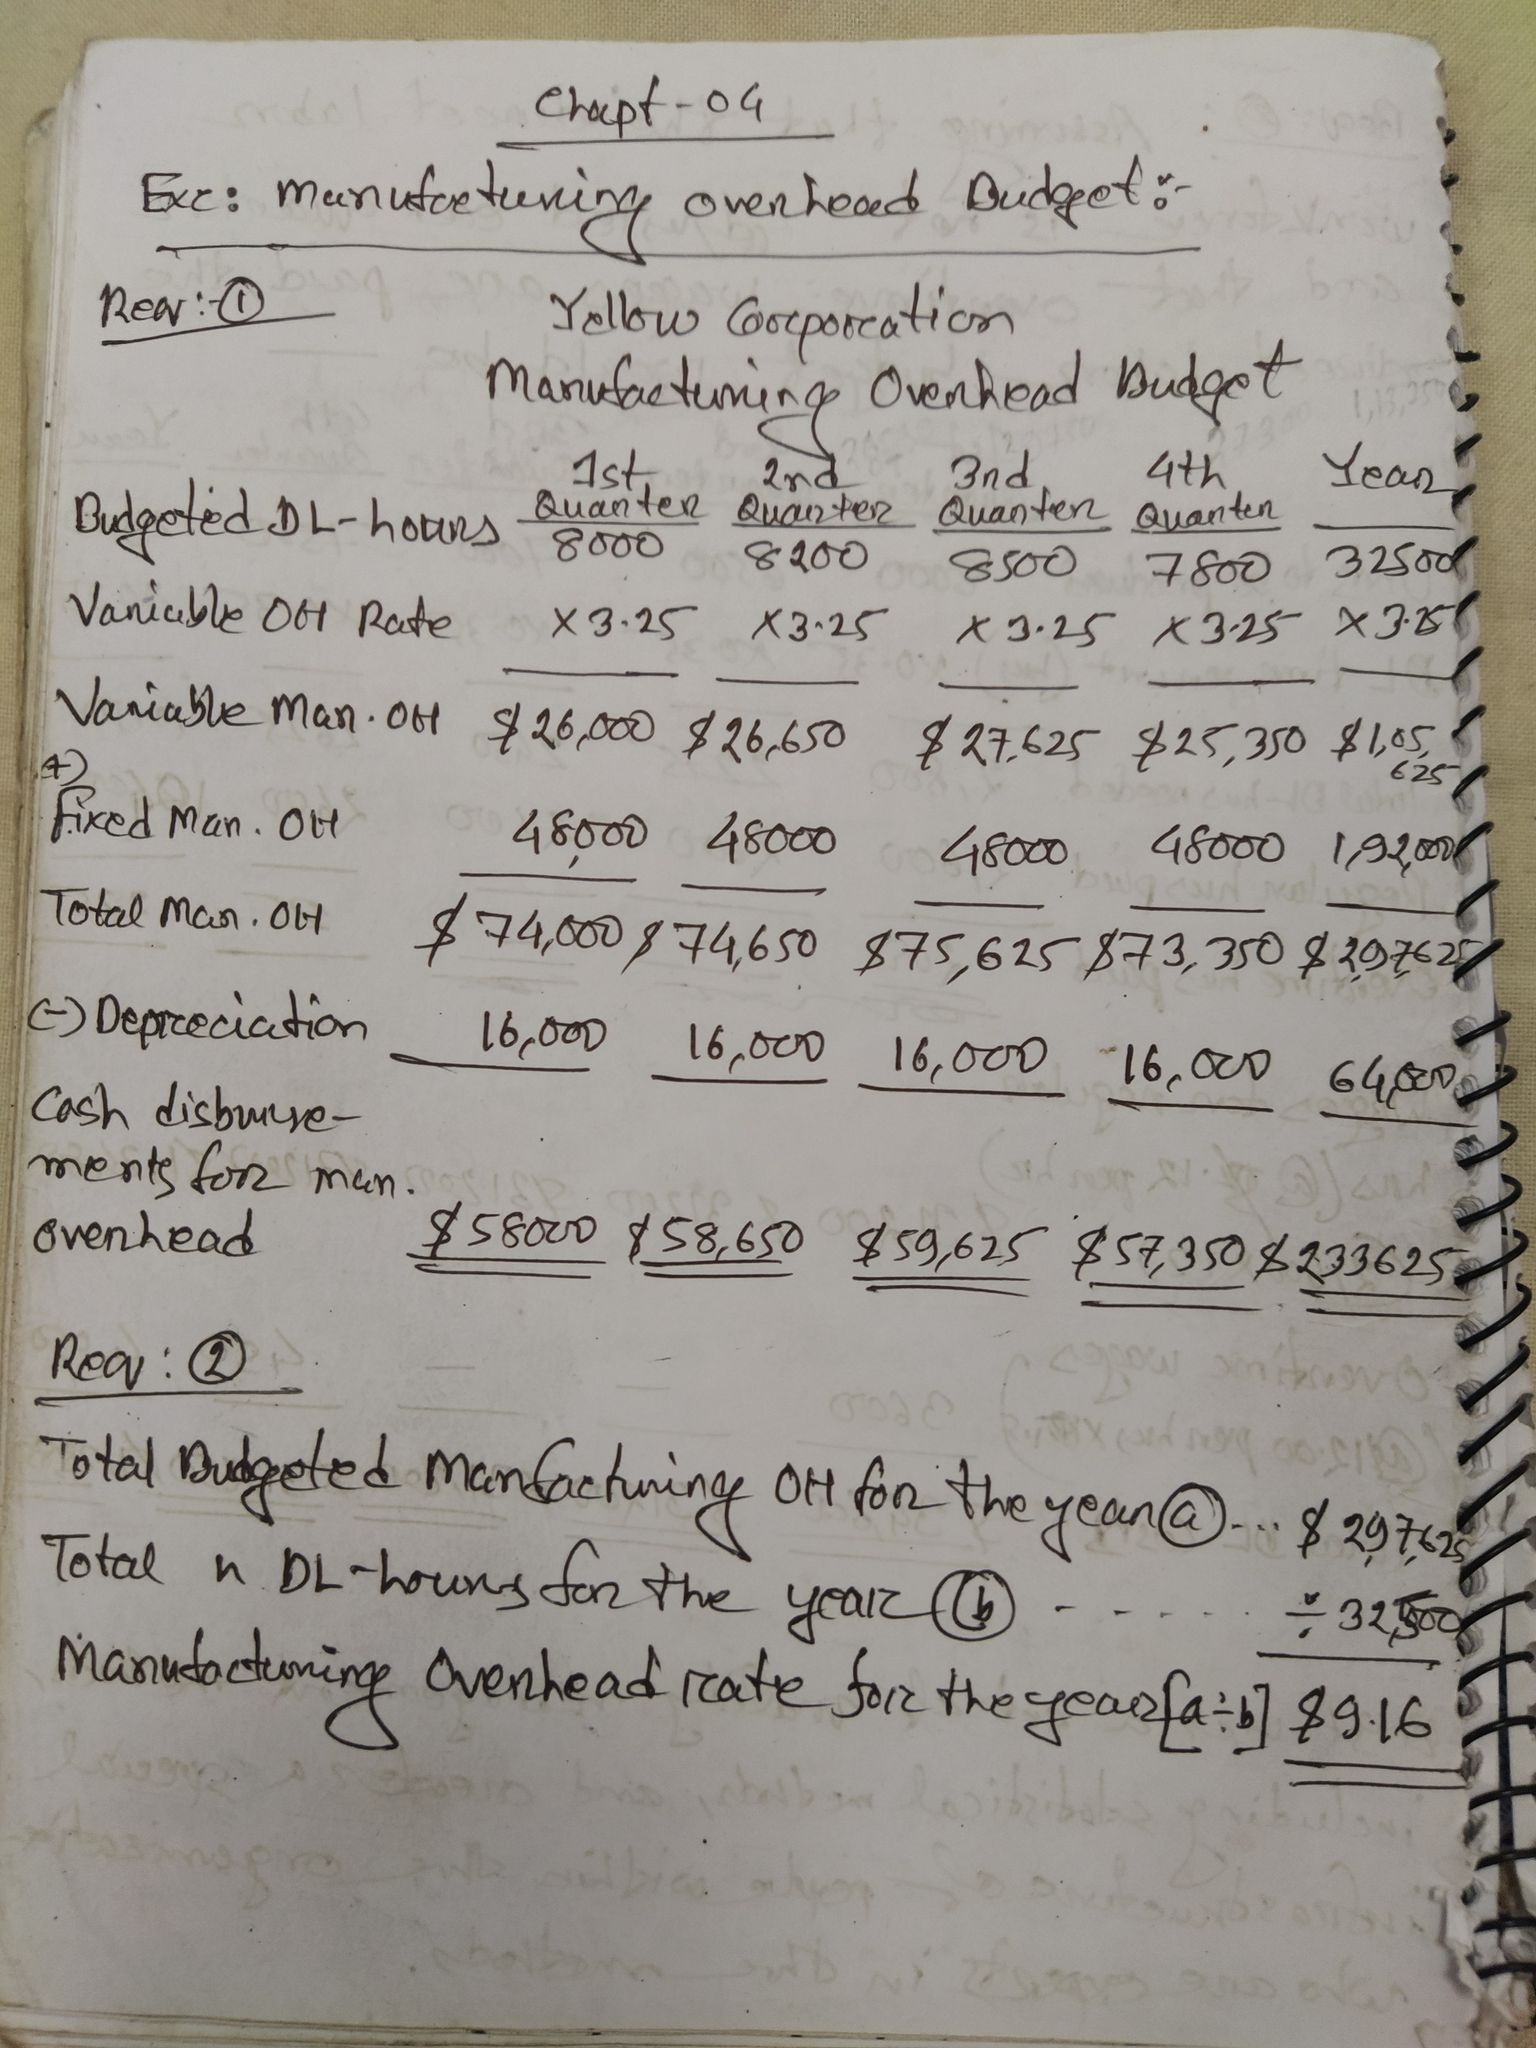 Chapt-04
Exc: Manufacturing overhead Budget:-
Req:-①
Yellow Corporation
Manufacturing Overhead Budget
1st Quarter 2nd Quarter 3rd Quarter 4th Quarter Year
Budgeted DL-hours 8000 8200 8500 7800 32500
Variable OH Rate ×3.25 ×3.25 ×3.25 ×3.25 ×3.25
Variable Man. OH $26,000 $26,650 $27,625 $25,350 $1,05,625
(+)
Fixed Man. OH 48,000 48000 48000 48000 1,92,000
Total Man. OH $74,000 $74,650 $75,625 $73,350 $2,97,625
(-) Depreciation 16,000 16,000 16,000 16,000 64,000
Cash disburse-
ments for man.
overhead $58000 $58,650 $59,625 $57,350 $233625
Req: ②
Total Budgeted Manfacturing OH for the year ⓐ... $ 2,97,625
Total " DL-hours for the year ⓑ - - - - . . ÷ 32,500
Manufacturing Overhead rate for the year [a÷b] $9.16